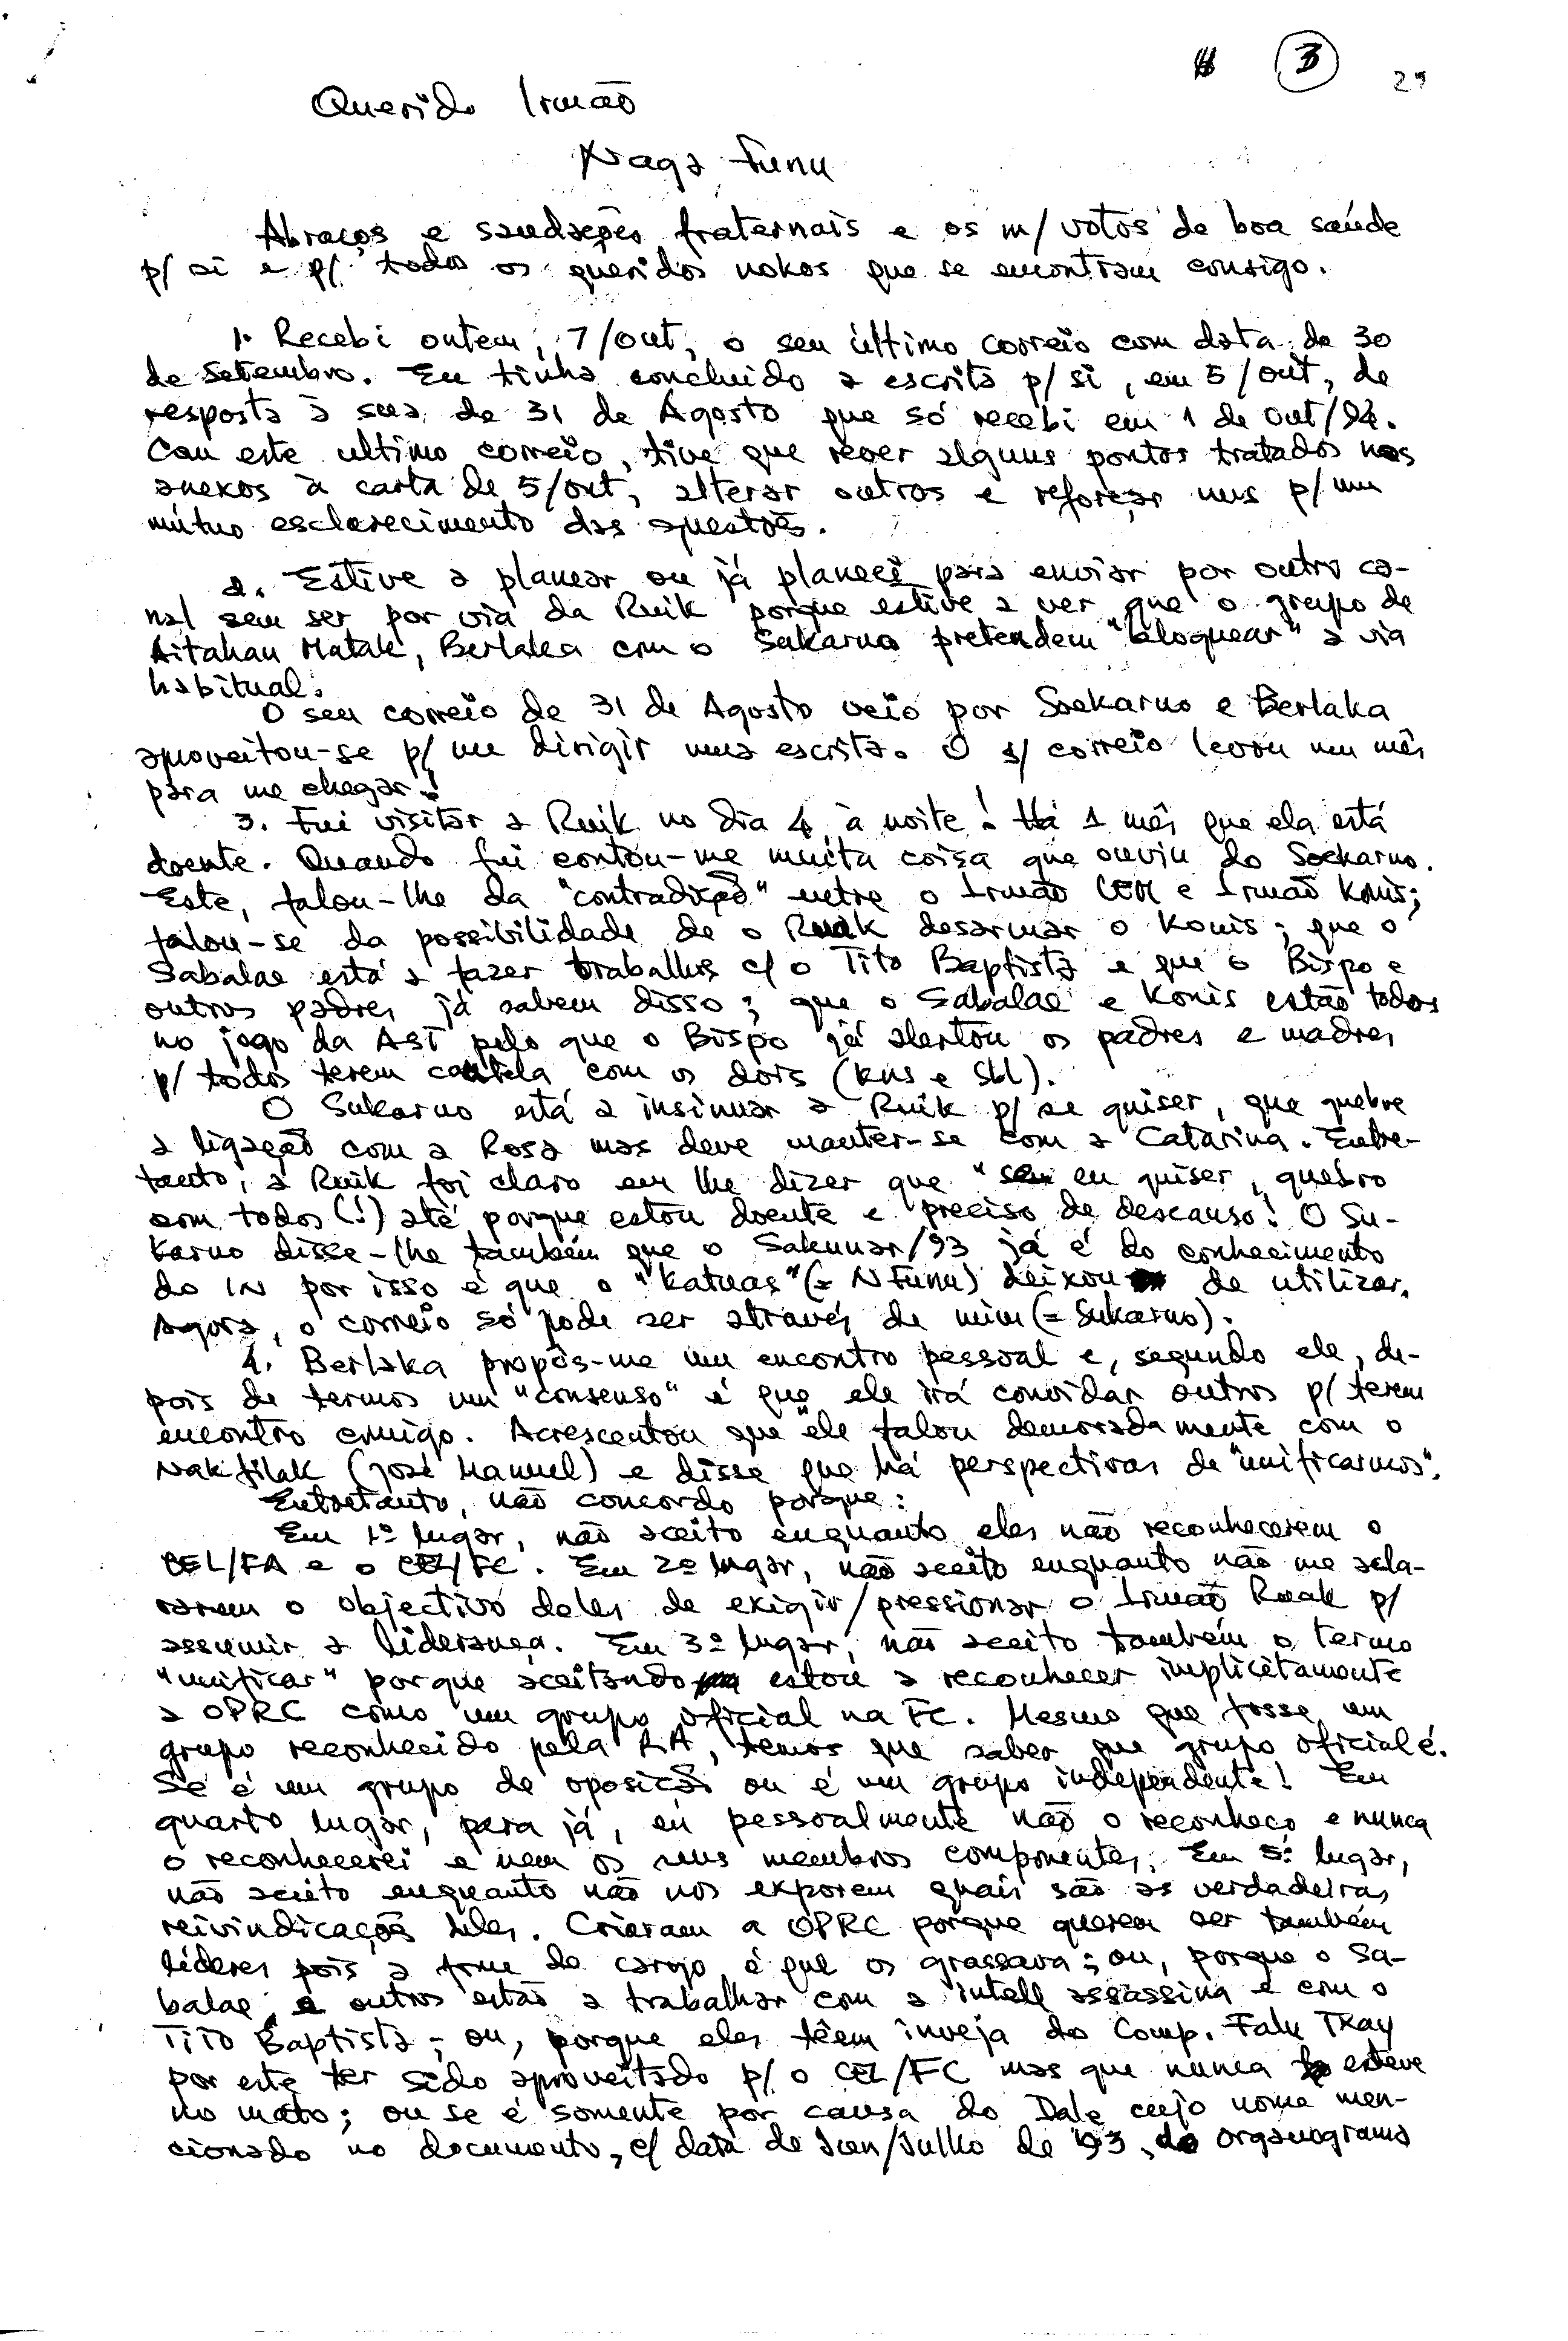 3 25
Querido Irmão
Naga Funu
Abraços e saudações fraternais e os m/ votos de boa saúde
p/ si e p/ todos os queridos nokos que se encontram consigo.
1. Recebi ontem, 7/out, o seu último correio com data de 30
de Setembro. Eu tinha concluido a escrita p/ si, em 5/out, de
resposta à sua de 31 de Agosto que só recebi em 1 de out/94.
Com este ultimo correio, tive que rever alguns pontos tratados nos
anexos à carta de 5/out, alterar outros e reforçar uns p/ um
mútuo esclarecimento das questões.
2. Estive a planear ou já planeei para enviar por outro ca-
nal sem ser por via da Ruik porque estive a ver que o grupo de
Aitahan Matak, Berlaka com o Sukarno pretendem "bloquear" a via
habitual.
O seu correio de 31 de Agosto veio por Soekarno e Berlaka
aproveitou-se p/ me dirigir uma escrita. O s/ correio levou um mês
para me chegar!
3. Fui visitar a Ruik no dia 4 à noite! Há 1 mês que ela está
doente. Quando fui contou-me muita coisa que ouviu do Soekarno.
Este, falou-lhe da "contradição" entre o Irmão e Irmão Konis;
falou-se da possibilidade de o Ruak desarmar o Konis; que o
Sabalae está a fazer trabalhos c/ o Tito Baptista e que o Bispo e
outros padres já sabem disso; que o Sabalae e Konis estão todos
no jogo da ASI pelo que o Bispo já alertou os padres e madres
p/ todos terem cautela com os dois (Kns e Sbl).
O Sukarno está a insinuar a Ruik p/ se quiser, que quebre
a ligação com a Rosa mas deve manter-se com a Catarina. Entre-
tanto, a Ruik foi claro em lhe dizer que "se eu quiser, quebro
com todos (!) até porque estou doente e preciso de descanso! O Su-
karno disse-lhe também que o Sakunar/93 já é do conhecimento
do IN por isso é que o "Katuas" (= N Funu) deixou de utilizar.
Agora, o correio só pode ser através de mim (= Sukarno).
4. Berlaka propôs-me um encontro pessoal e, segundo ele, de-
pois de termos um "consenso" é que ele irá convidar outros p/ terem
encontro comigo. Acrescentou que ele falou demoradamente com o
Nakfilak (José Manuel) e disse que há perspectivas de "unificarmos".
Entretanto, não concordo porque:
Em 1º lugar, não aceito enquanto eles não reconhecerem o
CEL/FA e o CEL/FC. Em 2º lugar, não aceito enquanto não me acla-
rarem o objectivo deles de exigir/pressionar o Irmão Ruak p/
assumir a liderança. Em 3º lugar, não aceito também o termo
"unificar" porque aceitando estou a reconhecer implicitamente
a OPRC como um grupo oficial na FC. Mesmo que fosse um
grupo reconhecido pela LA, temos que saber que grupo oficial é.
Se é um grupo de oposição ou é um grupo independente! Em
quarto lugar, para já, eu pessoalmente não o reconheço e nunca
o reconhecerei e nem os seus membros componentes. Em 5º lugar,
não aceito enquanto não nos exporem quais são as verdadeiras
reivindicações deles. Criaram a OPRC porque querem ser também
líderes pois a fome de cargo é que os grassava; ou, porque o Sa-
balae e outros estão a trabalhar com a intell assassina e com o
Tito Baptista; ou, porque eles têem inveja do Comp. Falu Txay
por este ter sido aproveitado p/ o CEL/FC mas que nunca esteve
no mato; ou se é somente por causa do Dale cujo nome men-
cionado no documento, c/ data de Jun/Julho de 93, do organograma